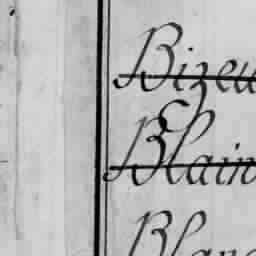 Bizeu
Blain
Blanc